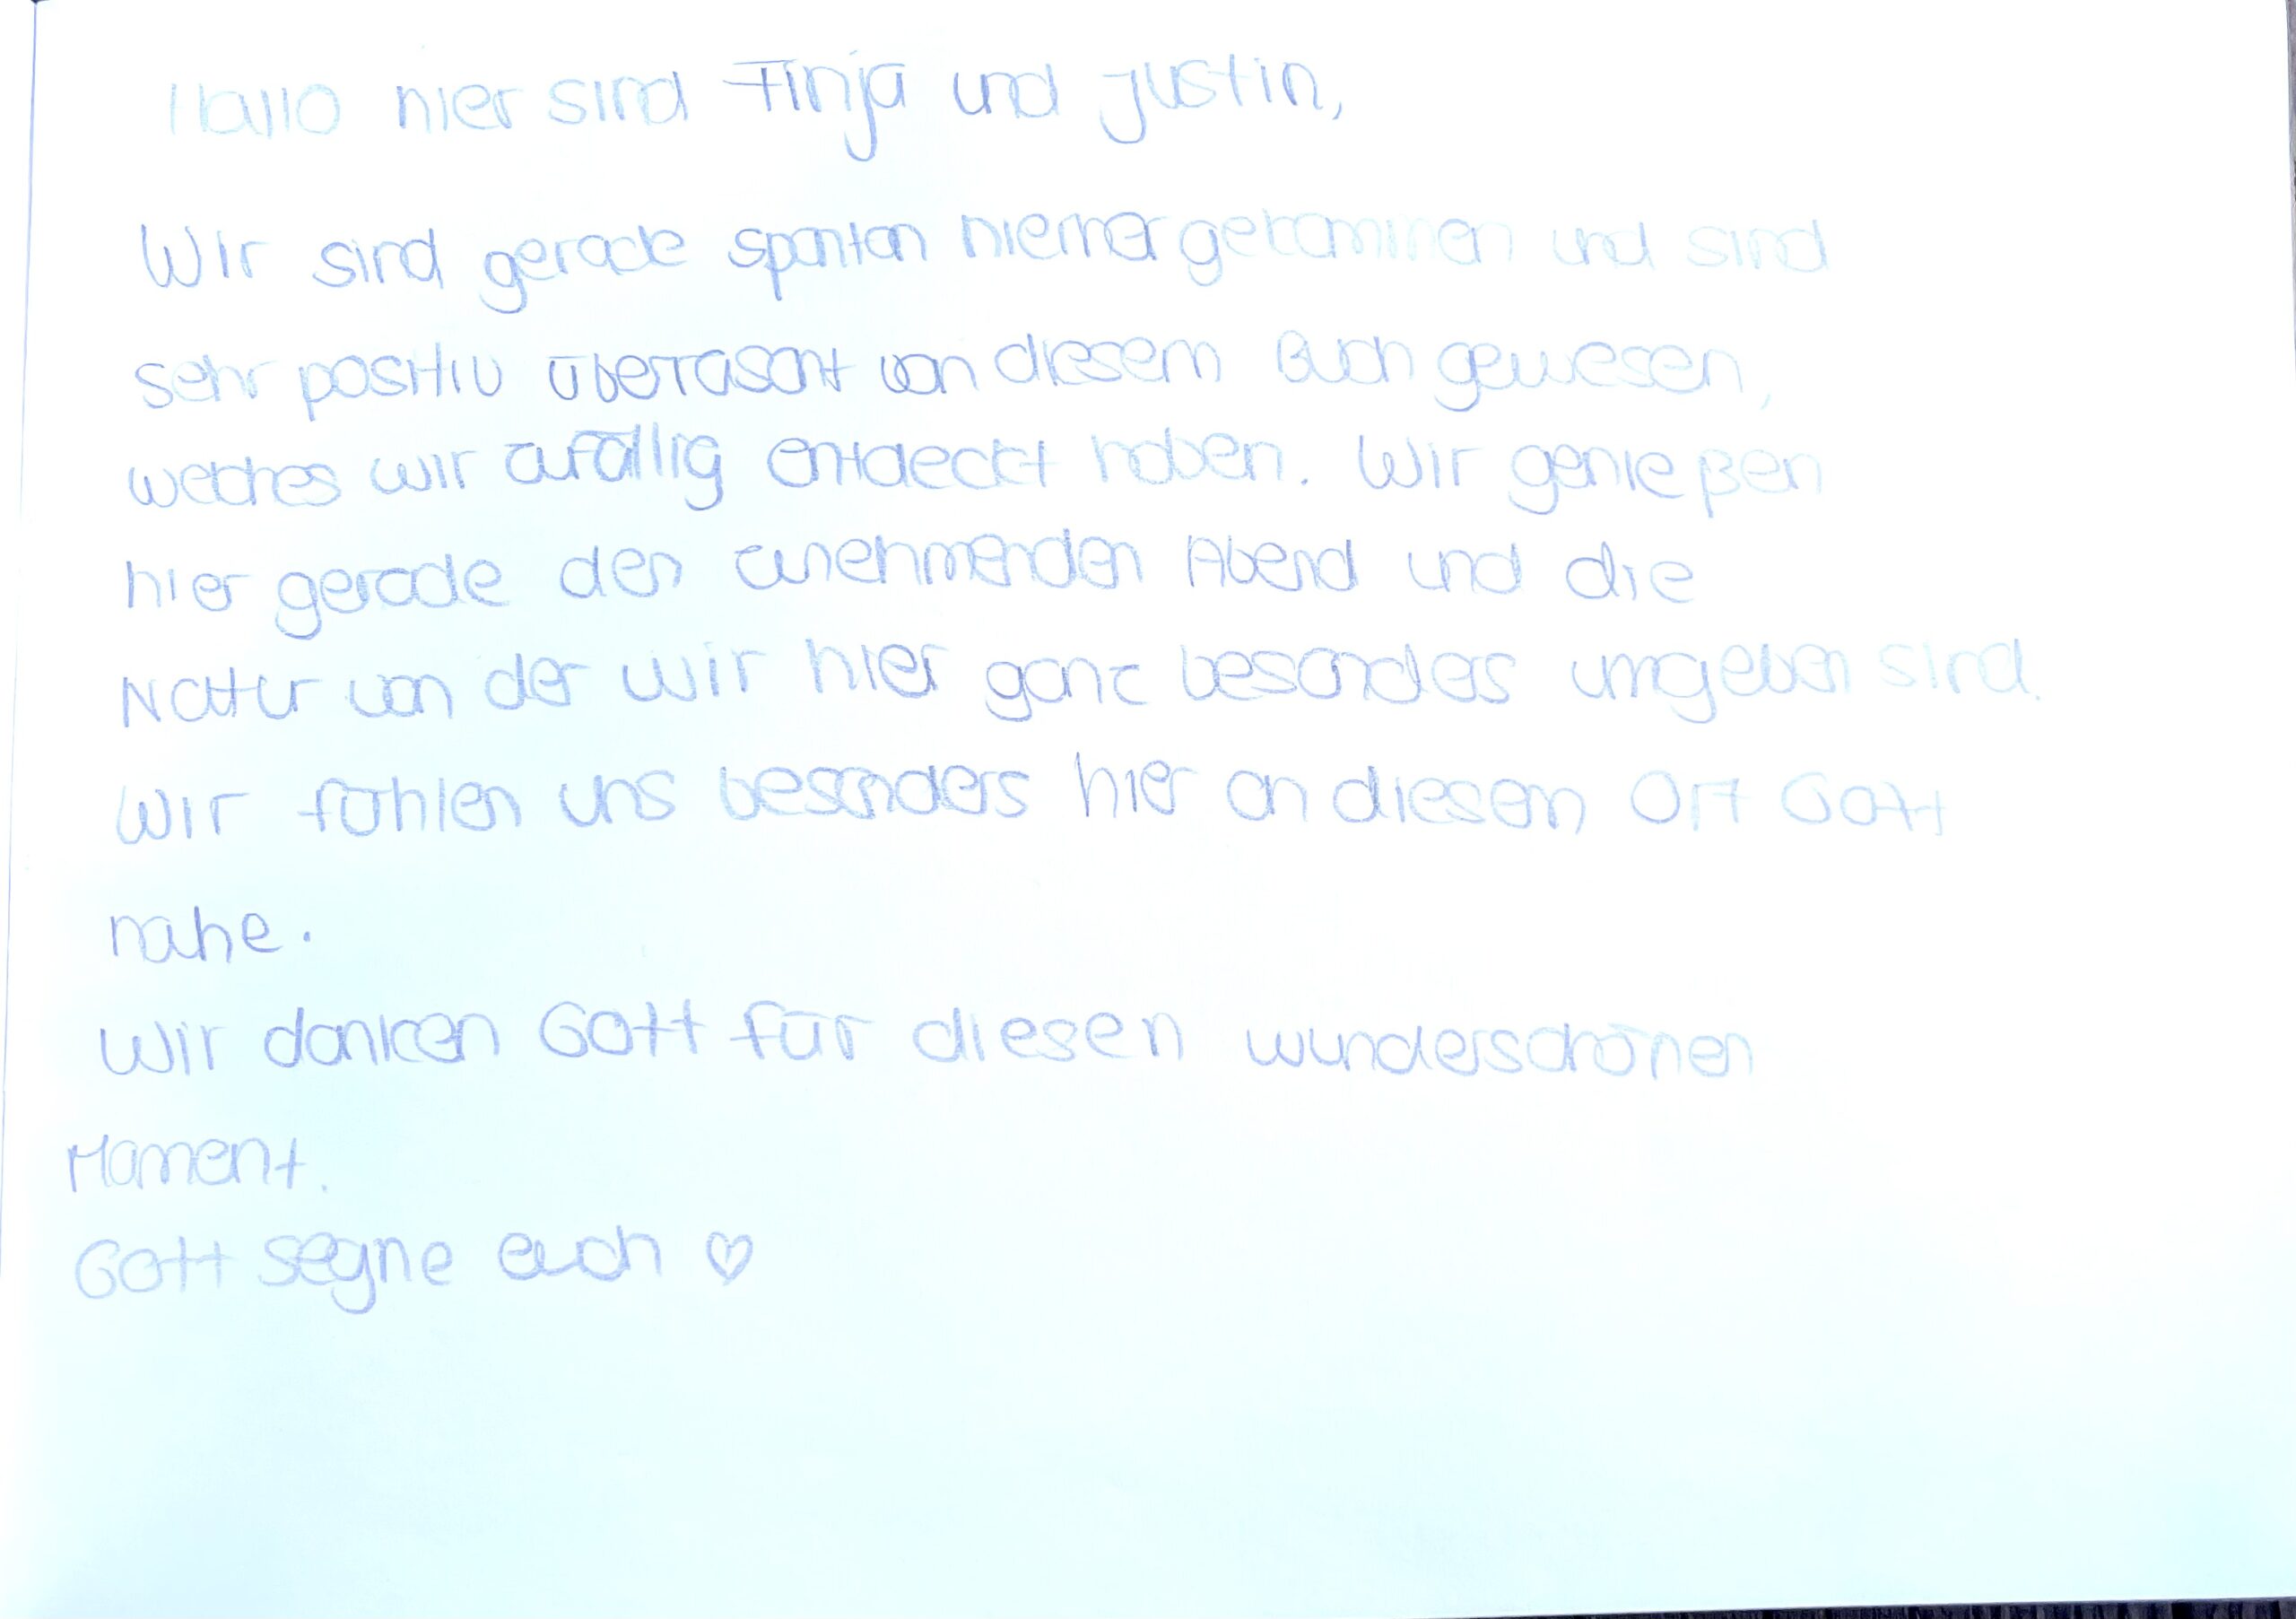 Hallo hier sind Finja und Justin,
Wir sind gerade spontan hierher gekommen und sind
sehr positiv überrascht von diesem Buch gewesen,
welches wir zufällig entdeckt haben. Wir genießen
hier gerade den zunehmenden Abend und die
Natur von der wir hier ganz besonders umgeben sind.
Wir fühlen uns besonders hier an diesen Ort Gott
nahe.
Wir danken Gott für diesen wunderschönen
Moment.
Gott segne euch ♡